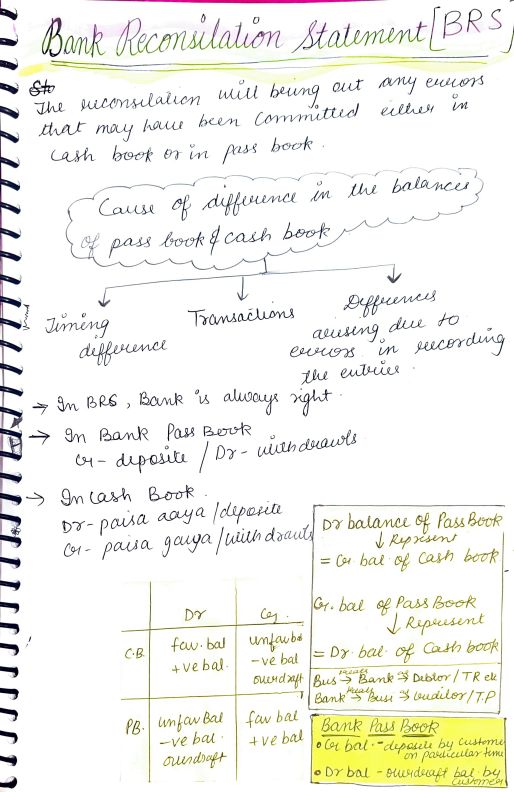 Bank Reconsilation Statement [BRS]
The reconsilation will bring out any errors
that may have been committed either in
cash book or in pass book.
Cause of difference in the balances
of pass book & cash book
Timing
difference
Transactions
Differences
arising due to
errors in recording
the entries.
→ In BRS, Bank is always right.
→ In Bank Pass Book
Cr - deposite / Dr - withdrawls
→ In Cash Book.
Dr - paisa aaya / deposite
Cr - paisa gaya / withdrawls
Dr balance of Pass Book
↓ Represent
= Cr bal. of Cash book
Cr. bal of Pass Book
↓ Represent
= Dr. bal. of Cash book
Bus → Bank → Debtor / TR etc
Bank → Busi → creditor / T.P
Dr Cr.
C.B. fav. bal unfav bal
+ve bal -ve bal
overdraft
P.B. unfav Bal fav bal
-ve bal. +ve bal
overdraft
Bank Pass Book
• Cr bal. - deposite by customer
on particular time
• Dr bal - overdraft bal by
customer